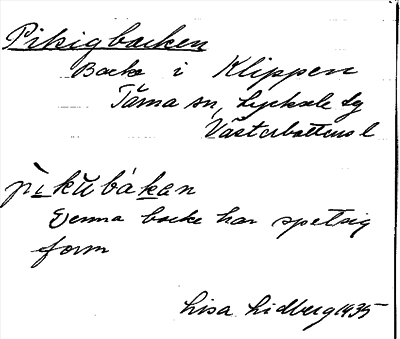 Pikigbacken
Backe i Klippen
Tärna sn, Lycksele lg
Västerbottens l
pìkŭbákan
Denna backe har spetsig
form
Lisa Lidberg 1935